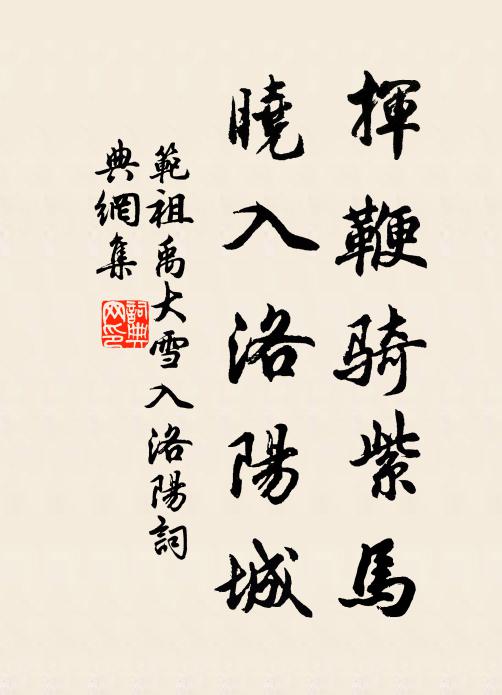 揮鞭騎紫馬
曉入洛陽城
範祖禹大雪入洛陽詞
典網集
詞典
网印